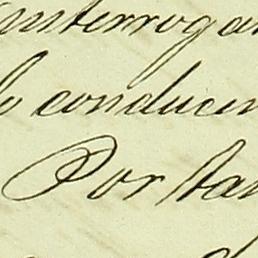 interrogan
lo conducen
Por tan